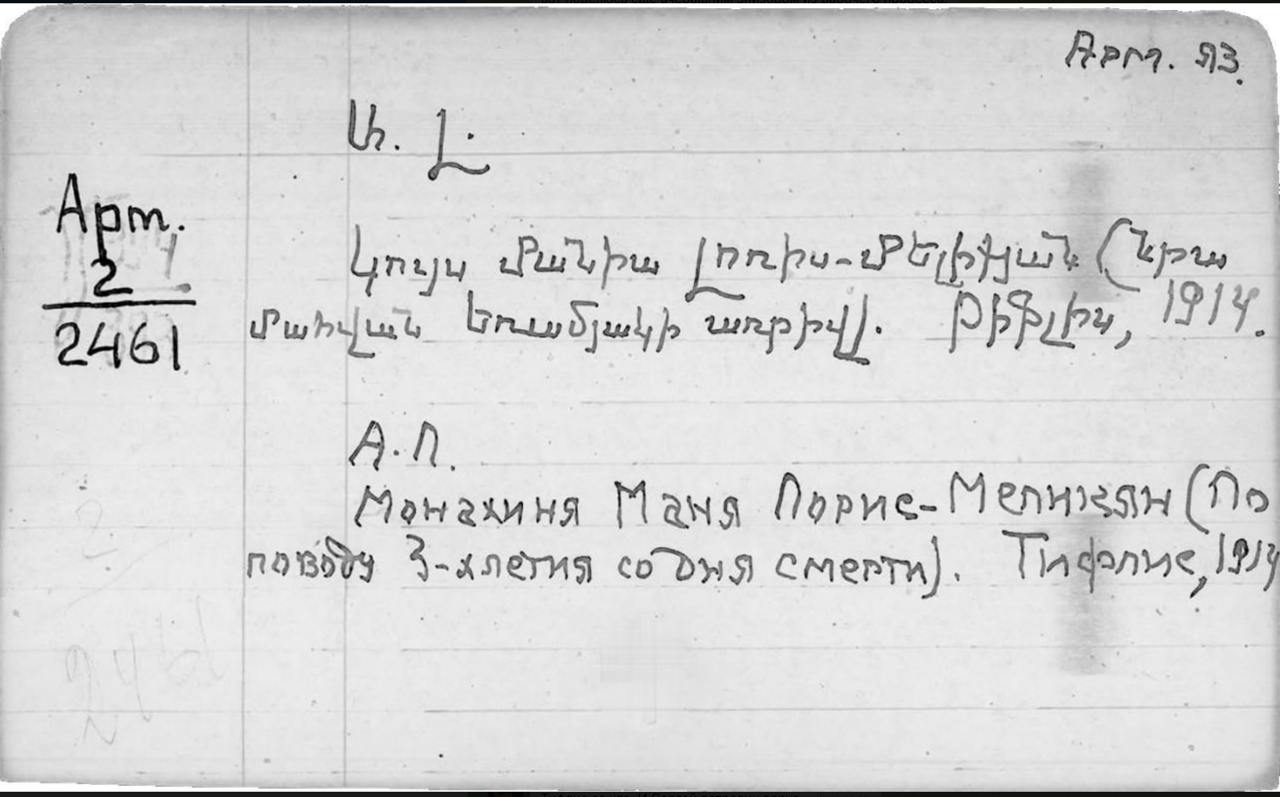 Арт. яз.
Ա. Լ.
Арт.
2
2461
Կույս Մանիա Լոռիս-Մելիքյան (Նրա
մահվան եռամյակի առթիվ). Թիֆլիս, 1914.
А. Л.
Монахиня Маня Лорис-Меликян (По
поводу 3-хлетия со дня смерти). Тифлис, 1914